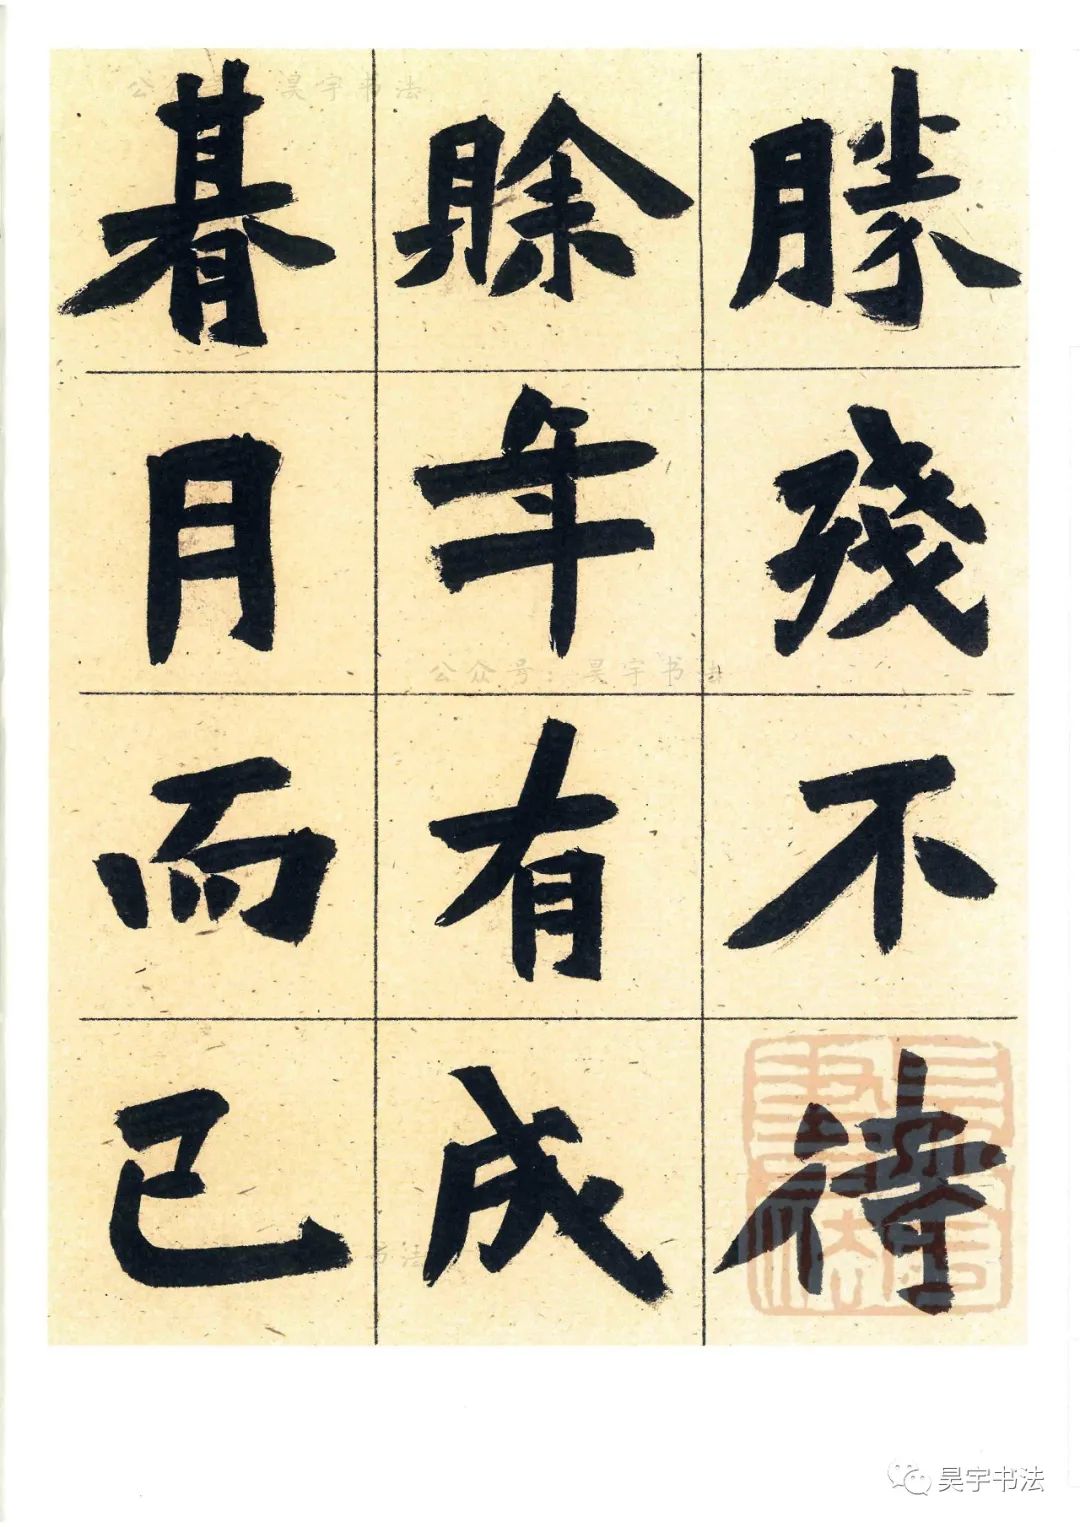 勝殘不待
賖年有成
朞月而已
昊宇书法
公众号：昊宇书法
书法
昊宇书法